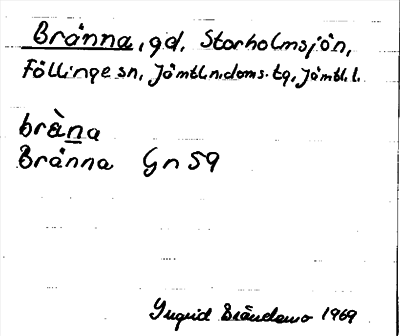 Bränna, gd, Storholmsjön,
Föllinge sn, Jämtl.n.doms.tg, Jämtl.l.
brä̀n̲a
Bränna Gn 59
Ingrid 1969